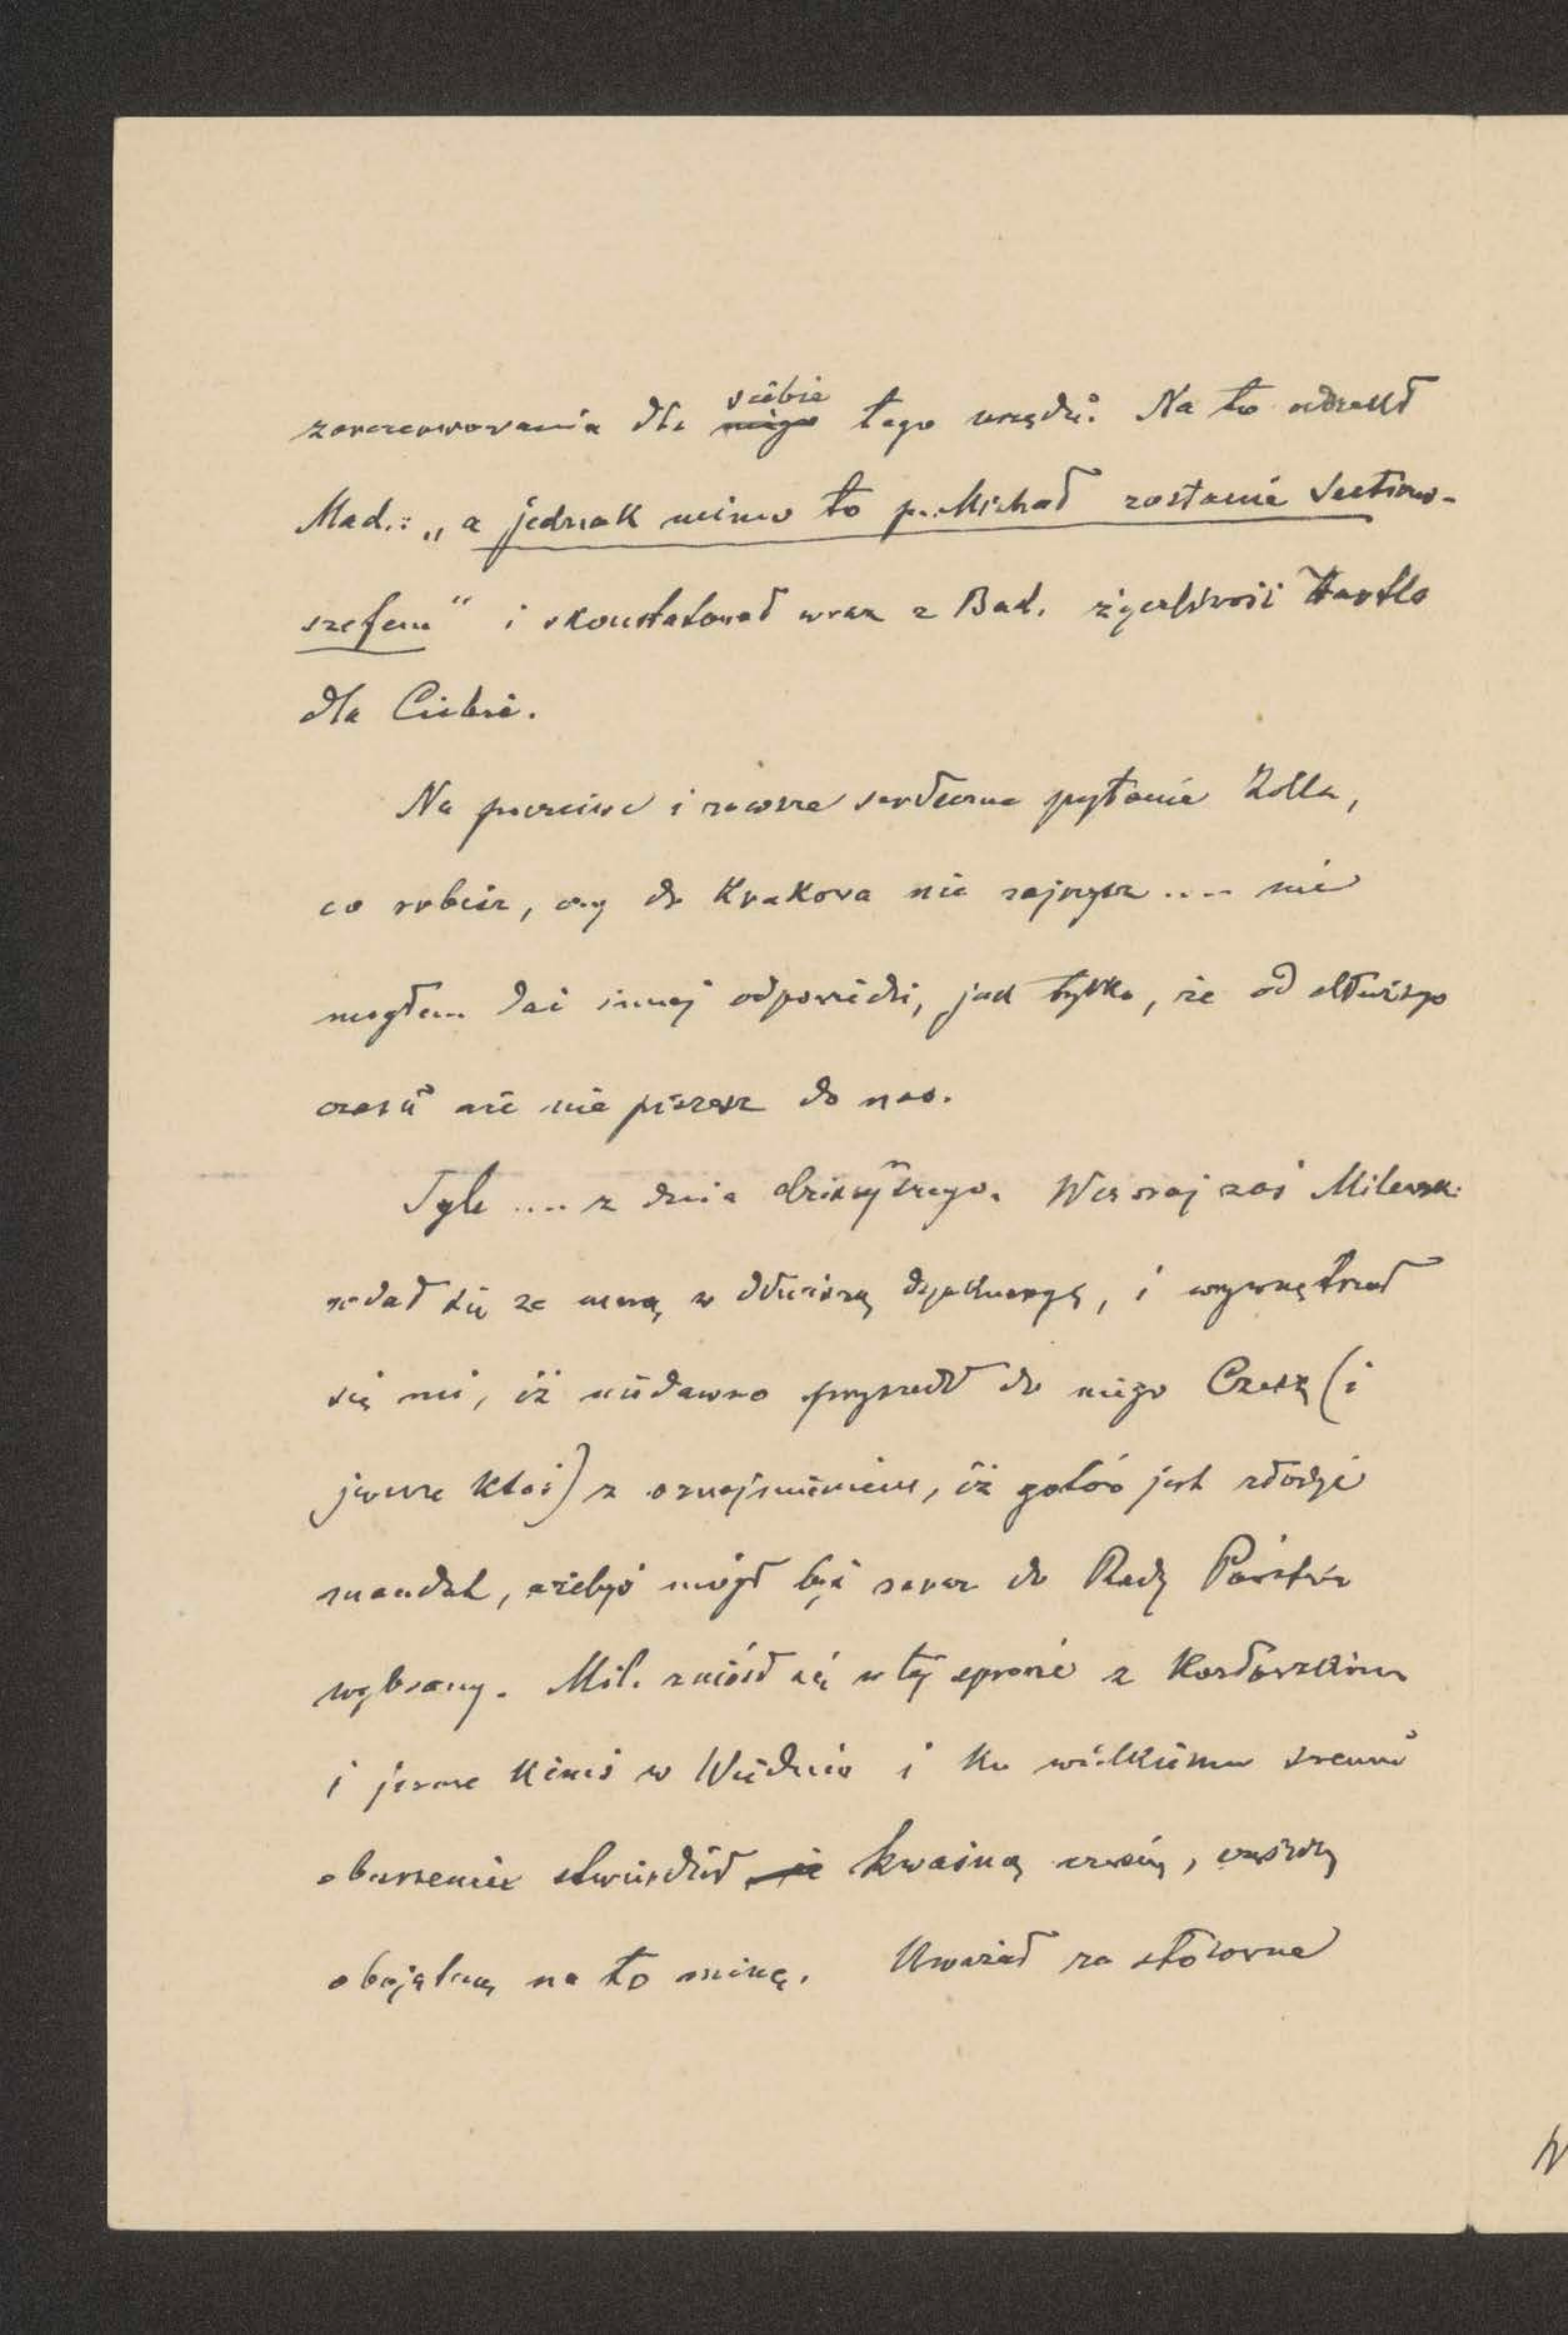 zarezerwowania dla ~~niego~~ siebie tego urzędu. Na to odrzekł
Mad.: „a jednak mimo to p. Michał zostanie Sections-
szefem" i skonstatował wraz z Bad. życzliwość Hartla
dla Ciebie.
Na poczciwe i zawsze serdeczne pytanie Zolla,
co robisz, czy do Krakowa nie zajrzysz .... nie
mogłem dać innej odpowiedzi, jak tylko, że od dłuższego
czasu nic nie piszesz do nas.
Tyle .... z dnia dzisiejszego. Wczoraj zaś Milewski
wdał się ze mną w dłuższą dyskusyę, i wywnętrzał
się mi, iż niedawno przyszedł do niego Czecz (i
jeszcze ktoś) z oznajmieniem, iż gotów jest złożyć
mandat, ażebyś mógł być zaraz do Rady Państwa
wybrany. Mil. zniósł się w tej sprawie z
i jeszcze kimś w Wiedniu i ku wielkiemu swemu
oburzeniu stwierdził kwaśną czasem, częściej
obojętną na to minę. Uważał za stosowne